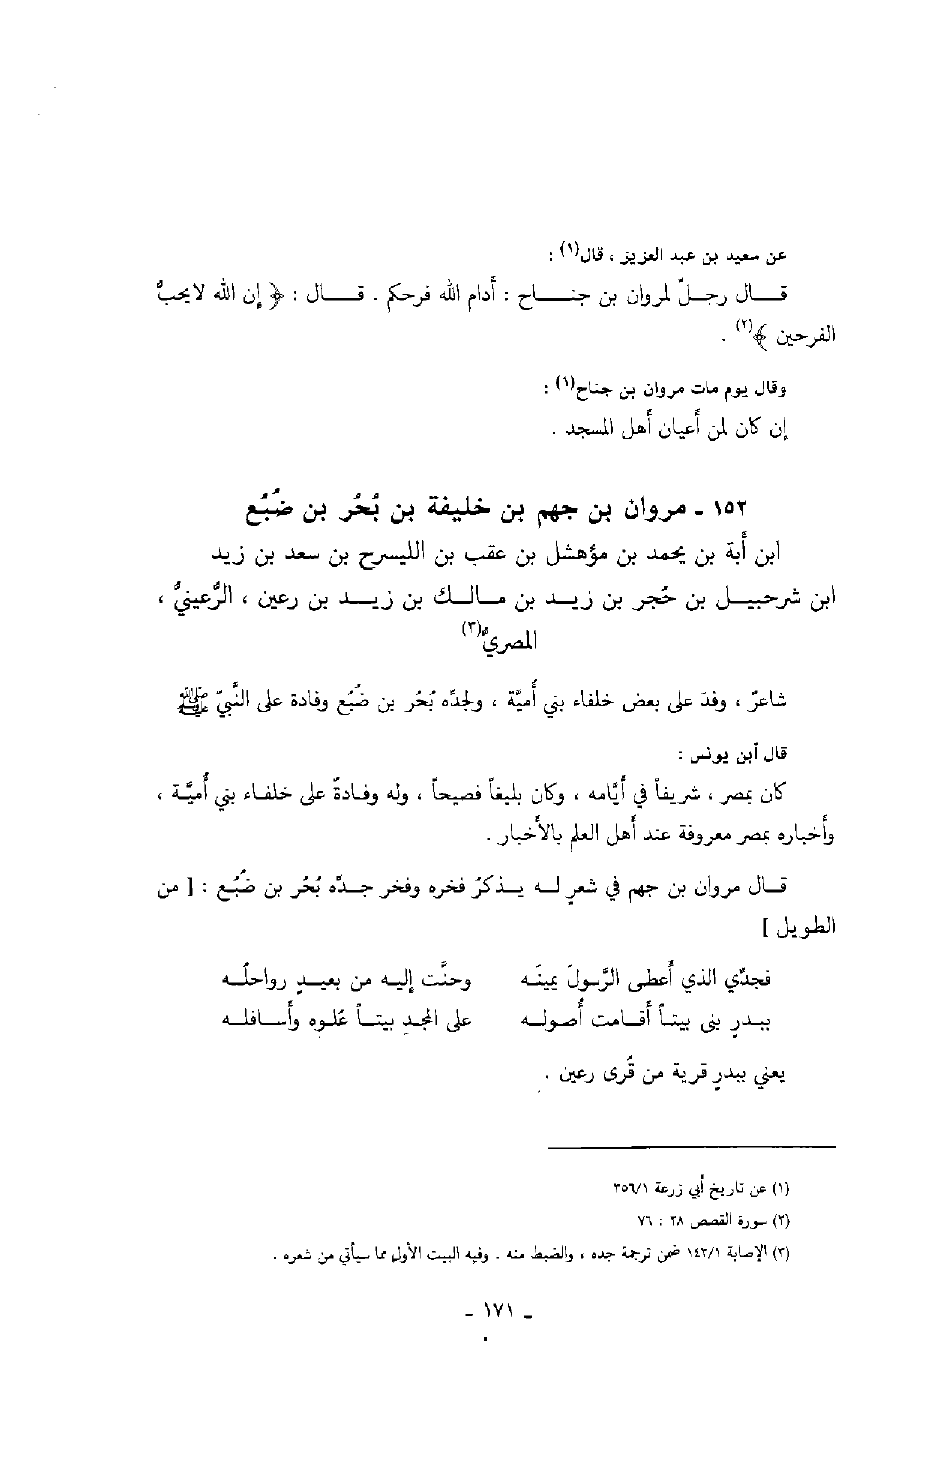 عن سعيد بن عبد العزيز ، قال(١) :
قال رجلٌ لمروان بن جناح : أدام الله فرحكم . قال : ﴿ إن الله لا يحبُّ
الفرحين ﴾(٢) .
وقال يوم مات مروان بن جناح(١) :
إن كان لمن أعيان أهل المسجد .
١٥٢ - مروان بن جهم بن خليفة بن بُحُر بن ضُبُع
ابن أبة بن يحمد بن مؤهشل بن عقب بن الليسرح بن سعد بن زيد
ابن شرحبيل بن حُجر بن زيد بن مالك بن زيد بن رعين ، الرُّعينيُّ ،
المصريّ(٣)
شاعرٌ ، وفدَ على بعض خلفاء بني أميَّة ، ولجدِّه بُحُر بن ضُبُع وفادة على النَّبيّ ﷺ
قال ابن يونس :
كان بمصر ، شريفاً في أيَّامه ، وكان بليغاً فصيحاً ، وله وفادةٌ على خلفاء بني أُميَّة ،
وأخباره بمصر معروفة عند أهل العلم بالأخبار .
قال مروان بن جهم في شعرٍ له يذكرُ فخره وفخر جدّه بُحُر بن ضُبُع : [ من
الطويل ]
فجدِّي الذي أعطى الرَّسولَ يمينَه وحنَّت إليه من بعيدٍ رواحلُه
ببدرٍ بنى بيتاً أقامت أُصوله على المجدِ بيتاً عُلوه وأسافله
يعني ببدرٍ قرية من قُرى رعين .
(١) عن تاريخ أبي زرعة ٣٥٦/١
(٢) سورة القصص ٢٨ : ٧٦
(٣) الإصابة ١٤٢/١ ضمن ترجمة جده ، والضبط منه . وفيه البيت الأول مما سيأتي من شعره .
- ١٧١ -